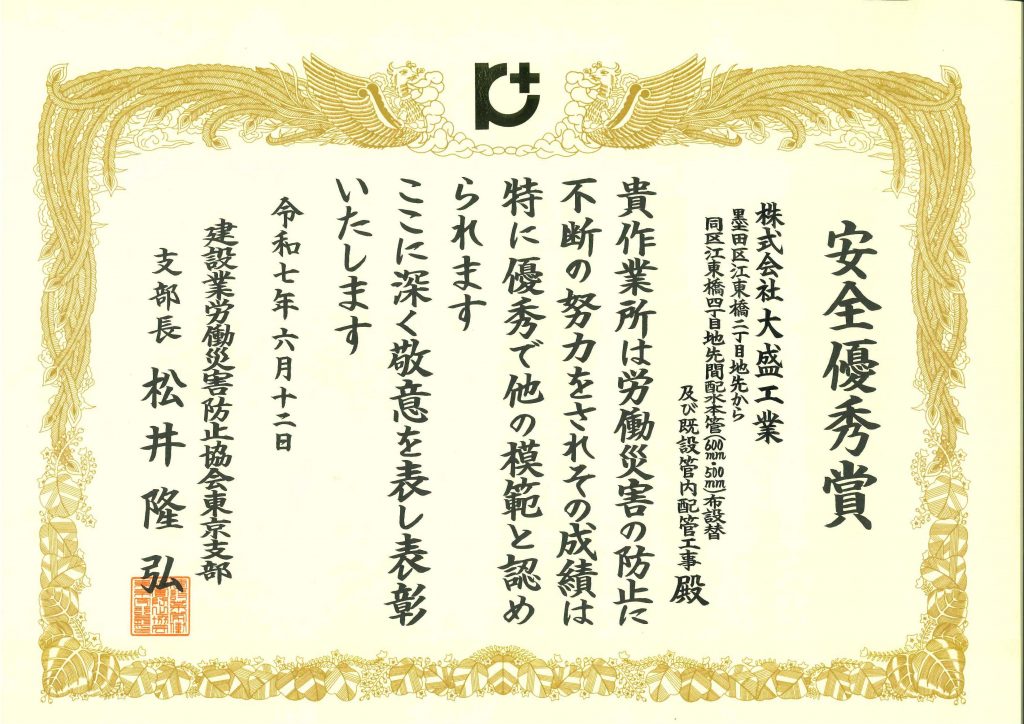 安全優秀賞
株式会社大盛工業
墨田区江東橋二丁目地先から
同区江東橋四丁目地先間配水本管(600㎜・500㎜)布設替
及び既設管内配管工事 殿
貴作業所は労働災害の防止に
不断の努力をされその成績は
特に優秀で他の模範と認め
られます
ここに深く敬意を表し表彰
いたします
令和七年六月十二日
建設業労働災害防止協会東京支部
支部長 松井隆弘